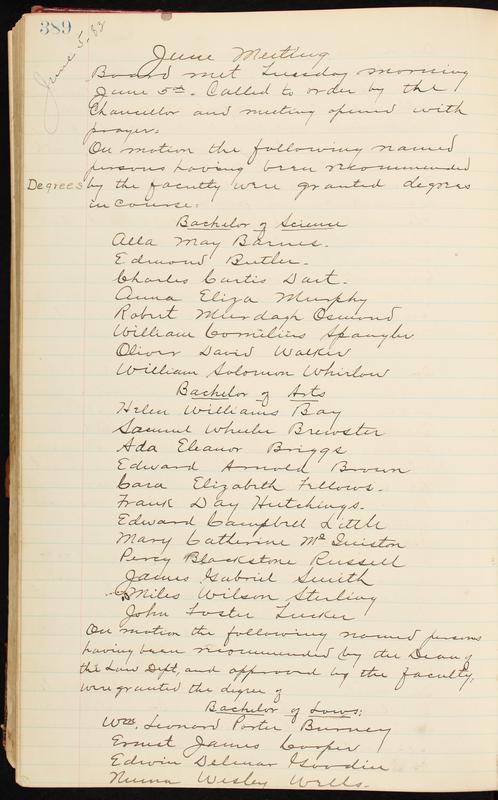 389
June 5, 83
June Meeting
Board met Tuesday morning
June 5th. Called to order by the
Chancellor and meeting opened with
prayer.
On motion the following named
persons having been recommended
Degrees by the faculty were granted degrees
in course:
Bachelor of Science
Alla May Barnes.
Edmond Butler.
Charles Curtis Dart.
Anna Eliza Murphy
Robert Murdagh Osmond
William Cornilius Spangler
Oliver David Walker
William Solomon Whirlow
Bachelor of Arts
Helen Williams Bay
Samuel Wheeler Brewster
Ada Eleanor Briggs
Edward Arnold Brown
Cara Elizabeth Fellows.
Frank Day Hutchings.
Edward Campbell Little
Mary Catherine McQuiston
Percy Blackstone Russell
James Gabriel Smith
Miles Wilson Sterling
John Foster Tucker
On motion the following named persons
having been recommended by the Dean of
the Law Dept, and approved by the faculty,
were granted the degree of
Bachelor of Laws:
Wm. Leonard Porter Burney
Ernest James Cooper
Edwin Delmar Goodin
Numa Wesley Wells.